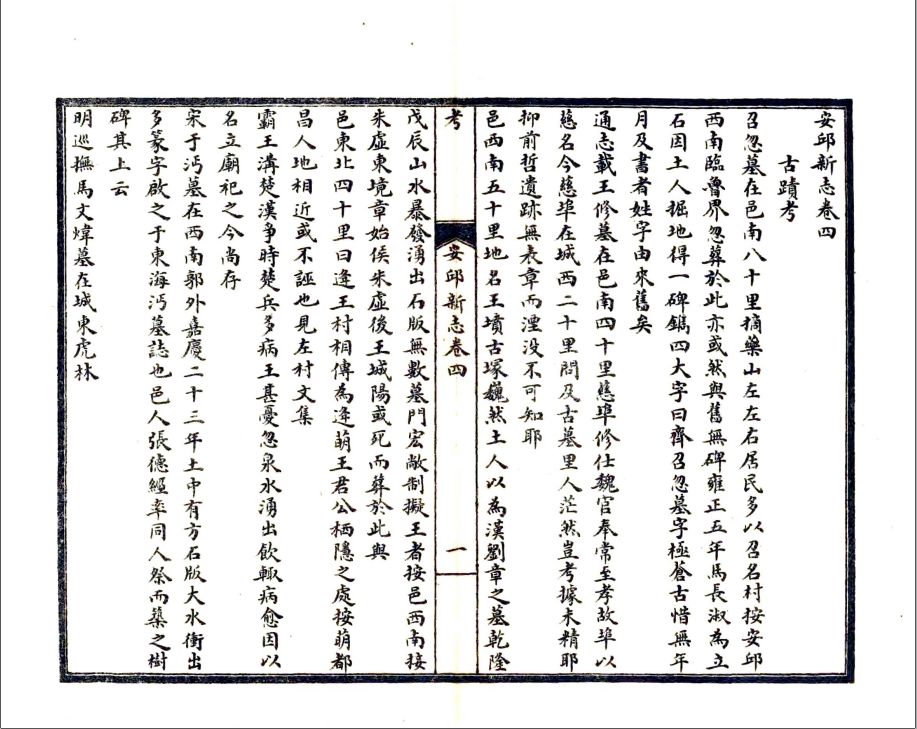 安邱新志卷四
古蹟考
召忽墓在邑南八十里摘藥山左左右居民多以召名村按安邱
西南臨魯界忽葬於此亦或然與舊無碑雍正五年馬長淑為立
石因土人掘地得一碑鐫四大字曰齊召忽墓字極蒼古惜無年
月及書者姓字由來舊矣
通志載王修墓在邑南四十里慈埠修仕魏官奉常至孝故埠以
慈名今慈埠在城西二十里問及古墓里人茫然豈考據未精耶
抑前哲遺跡無表章而湮没不可知耶
邑西南五十里地名王墳古塚巍然土人以為漢劉章之墓乾隆
考
安邱新志卷四
一
戊辰山水暴發湧出石版無數墓門宏敞制擬王者按邑西南接
朱虛東境章始侯朱虛後王城陽或死而葬於此與
邑東北四十里曰逄王村相傳為逄萌王君公栖隱之處按萌都
昌人地相近或不誣也見左村文集
霸王溝楚漢爭時楚兵多病王甚憂忽泉水湧出飲輙病愈因以
名立廟祀之今尚存
宋于沔墓在西南郭外嘉慶二十三年土中有方石版大水衝出
多篆字啟之于東海沔墓誌也邑人張德經率同人祭而築之樹
碑其上云
明巡撫馬文煒墓在城東虎林